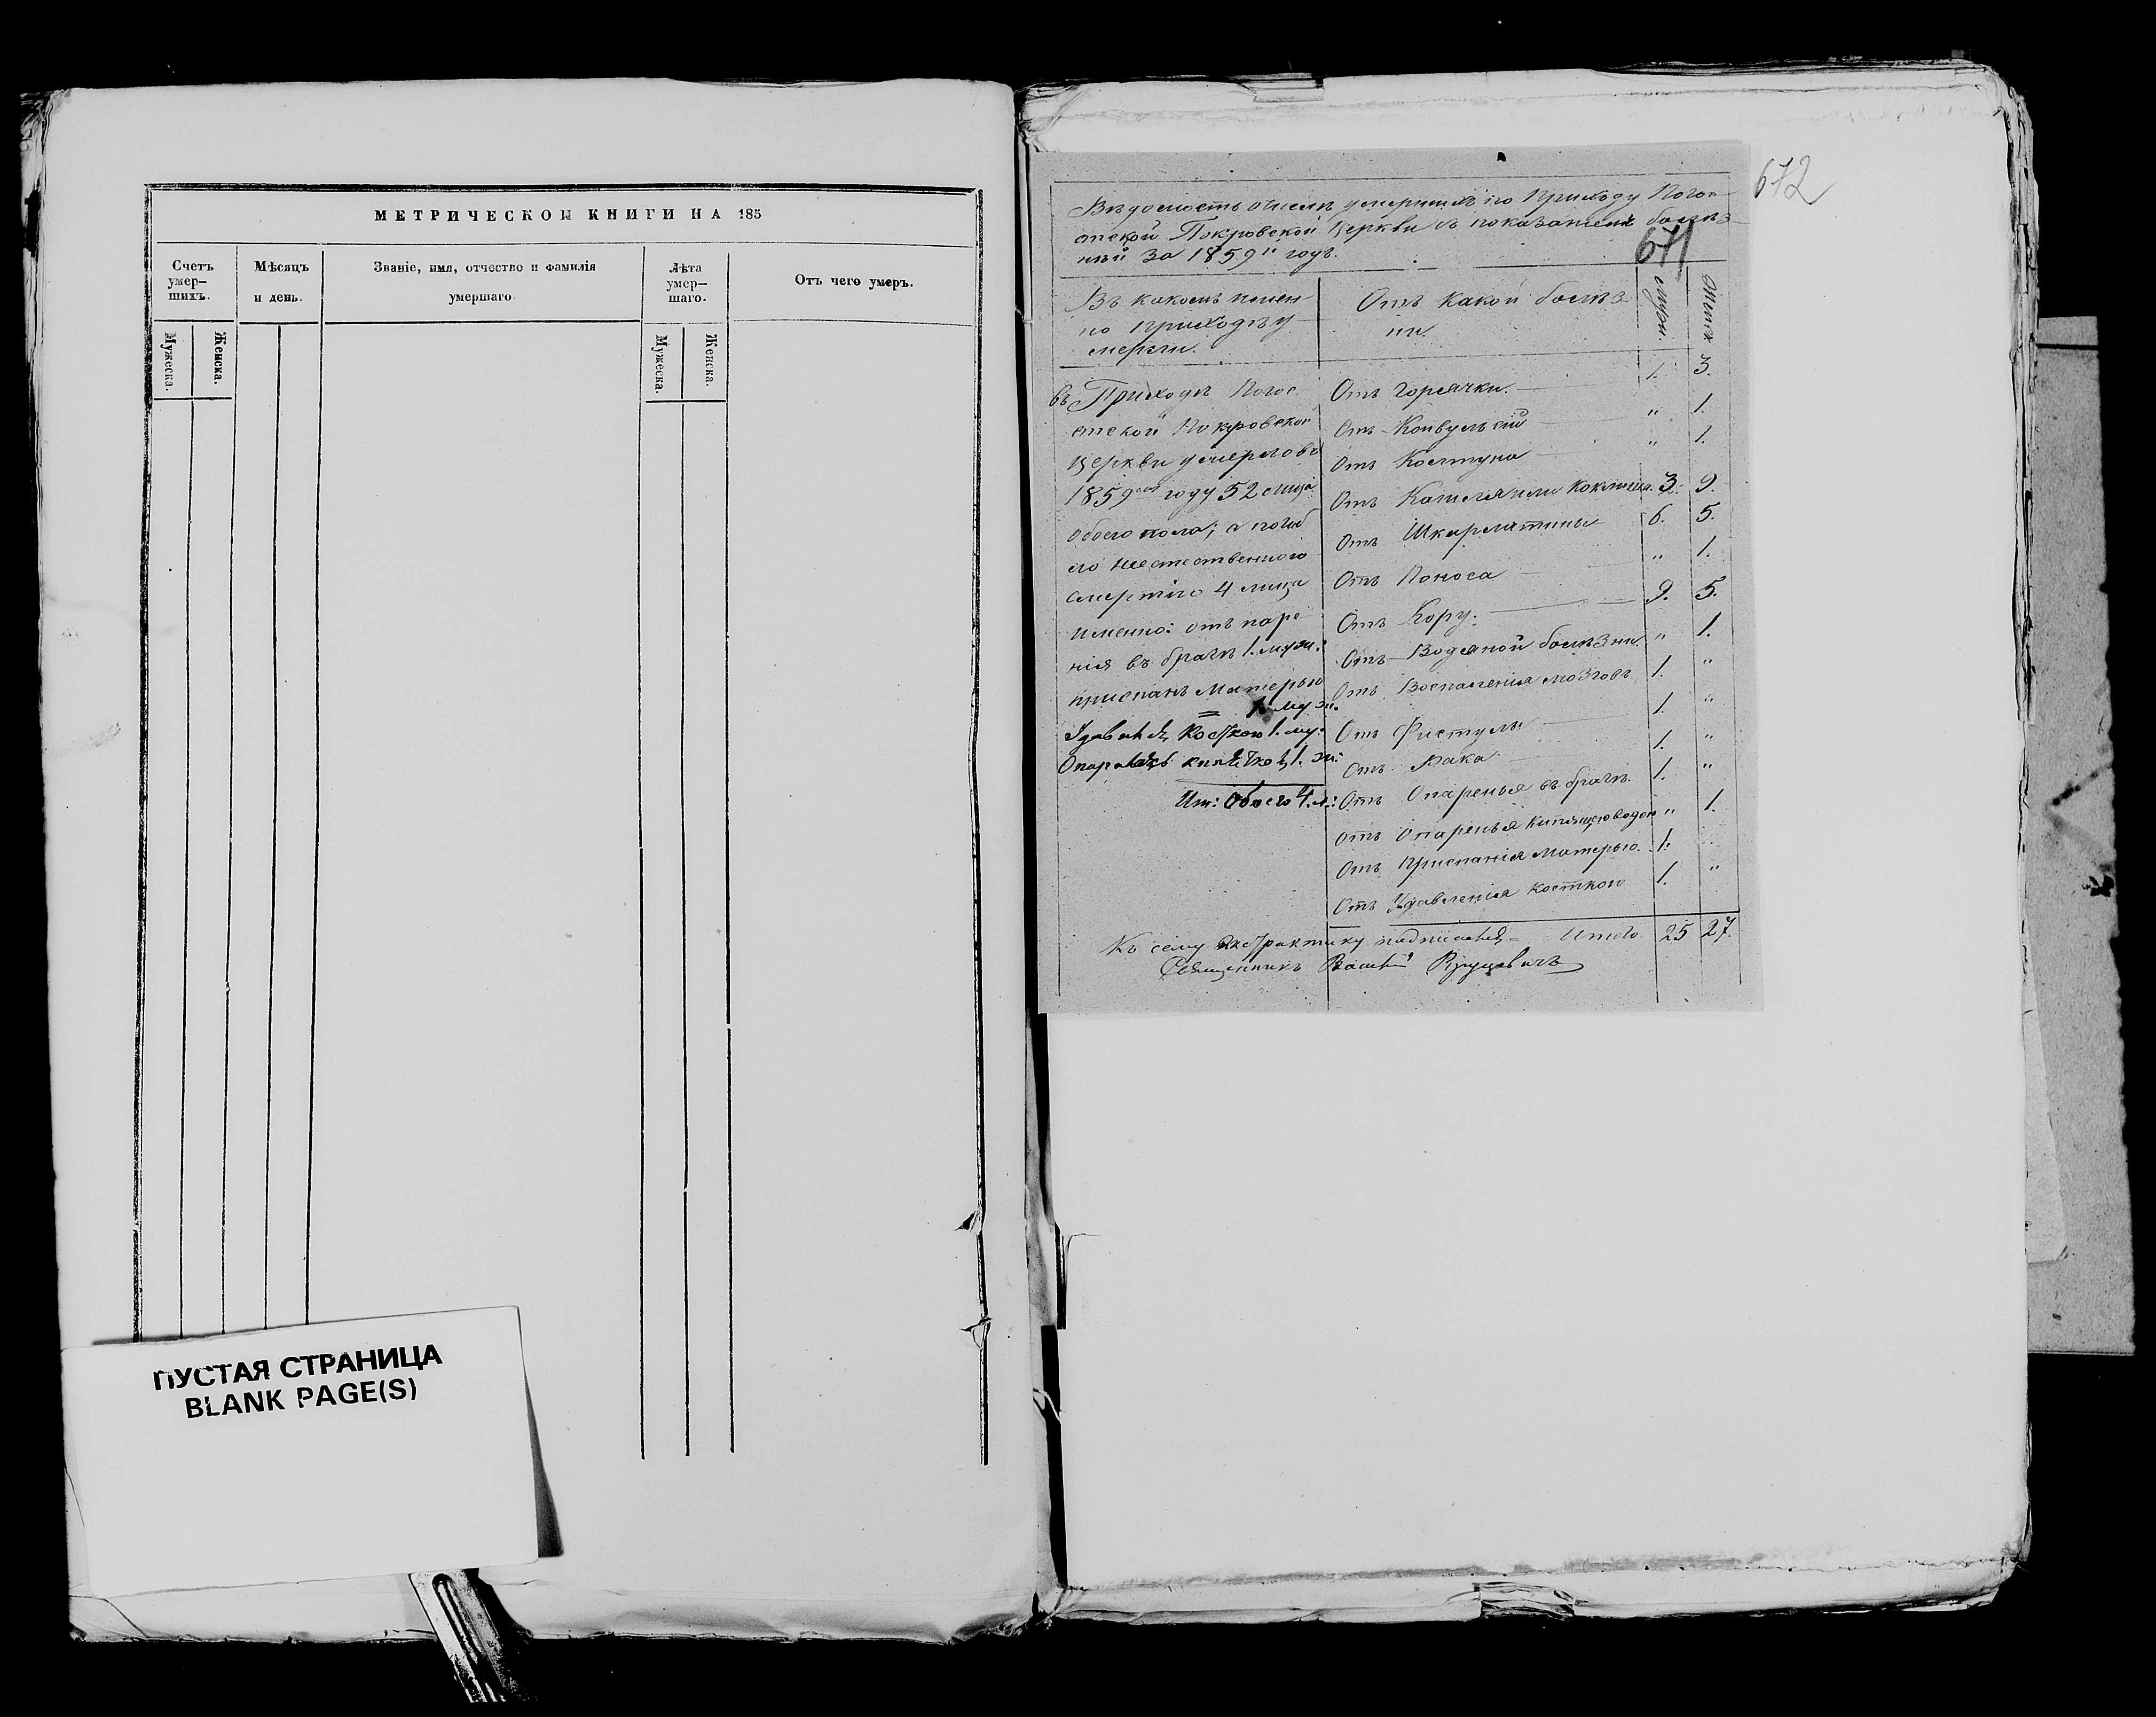 МЕТРИЧЕСКОЙ КНИГИ НА 185
Счетъ
умер-
шихъ.
Мѣсяцъ
и день.
Званіе, имя, отчество и фамилія
умершаго
Лѣта
умер-
шаго.
Отъ чего умеръ.
Мужеска.
Женска.
Мужеска.
Женска.
ПУСТАЯ СТРАНИЦА
BLANK PAGE(S)
672
671
Вѣдомость о числѣ умершихъ по Приходу Пого-
стской Покровской Церкви съ показаніемъ болѣз-
ней за 1859й годъ.
Въ какомъ имен-
но приходѣ у-
мерли.
Отъ какой болѣз
ни.
мужи.
женск
въ Приходѣ Погос
Отъ Горячки. 1. 3.
стской Покровской
Отъ Конвульсій „ 1.
Церкви умерло въ
Отъ Колтуна „ 1.
1859мъ году 52 лица
Отъ Кашеля или Коклюша. 3. 9.
обоего пола; а погиб
Отъ Шкарлатины 6. 5.
ло неестественного
Отъ Поноса „ 1.
смертію 4 лица
Отъ Кору. 9. 5.
именно: отъ паре
Отъ Водяной болѣзни. „ 1.
нія въ брагѣ 1. муж.
Отъ Воспаленія мозговъ 1. „
приспанъ Матерью
1 муж.
Отъ Фистулы 1. „
косткою 1. му:
Отъ Рака 1. „
1. ж:
Отъ Опаренья въ брагѣ. 1. „
Ит: обоего 4. л:
Отъ Опаренья кипящею водою „ 1.
Отъ Приспанія Матерью. 1. „
Отъ Удавленія косткою 1. „
Итого 25 27.
Къ сему экстрактику подписался
Священникъ